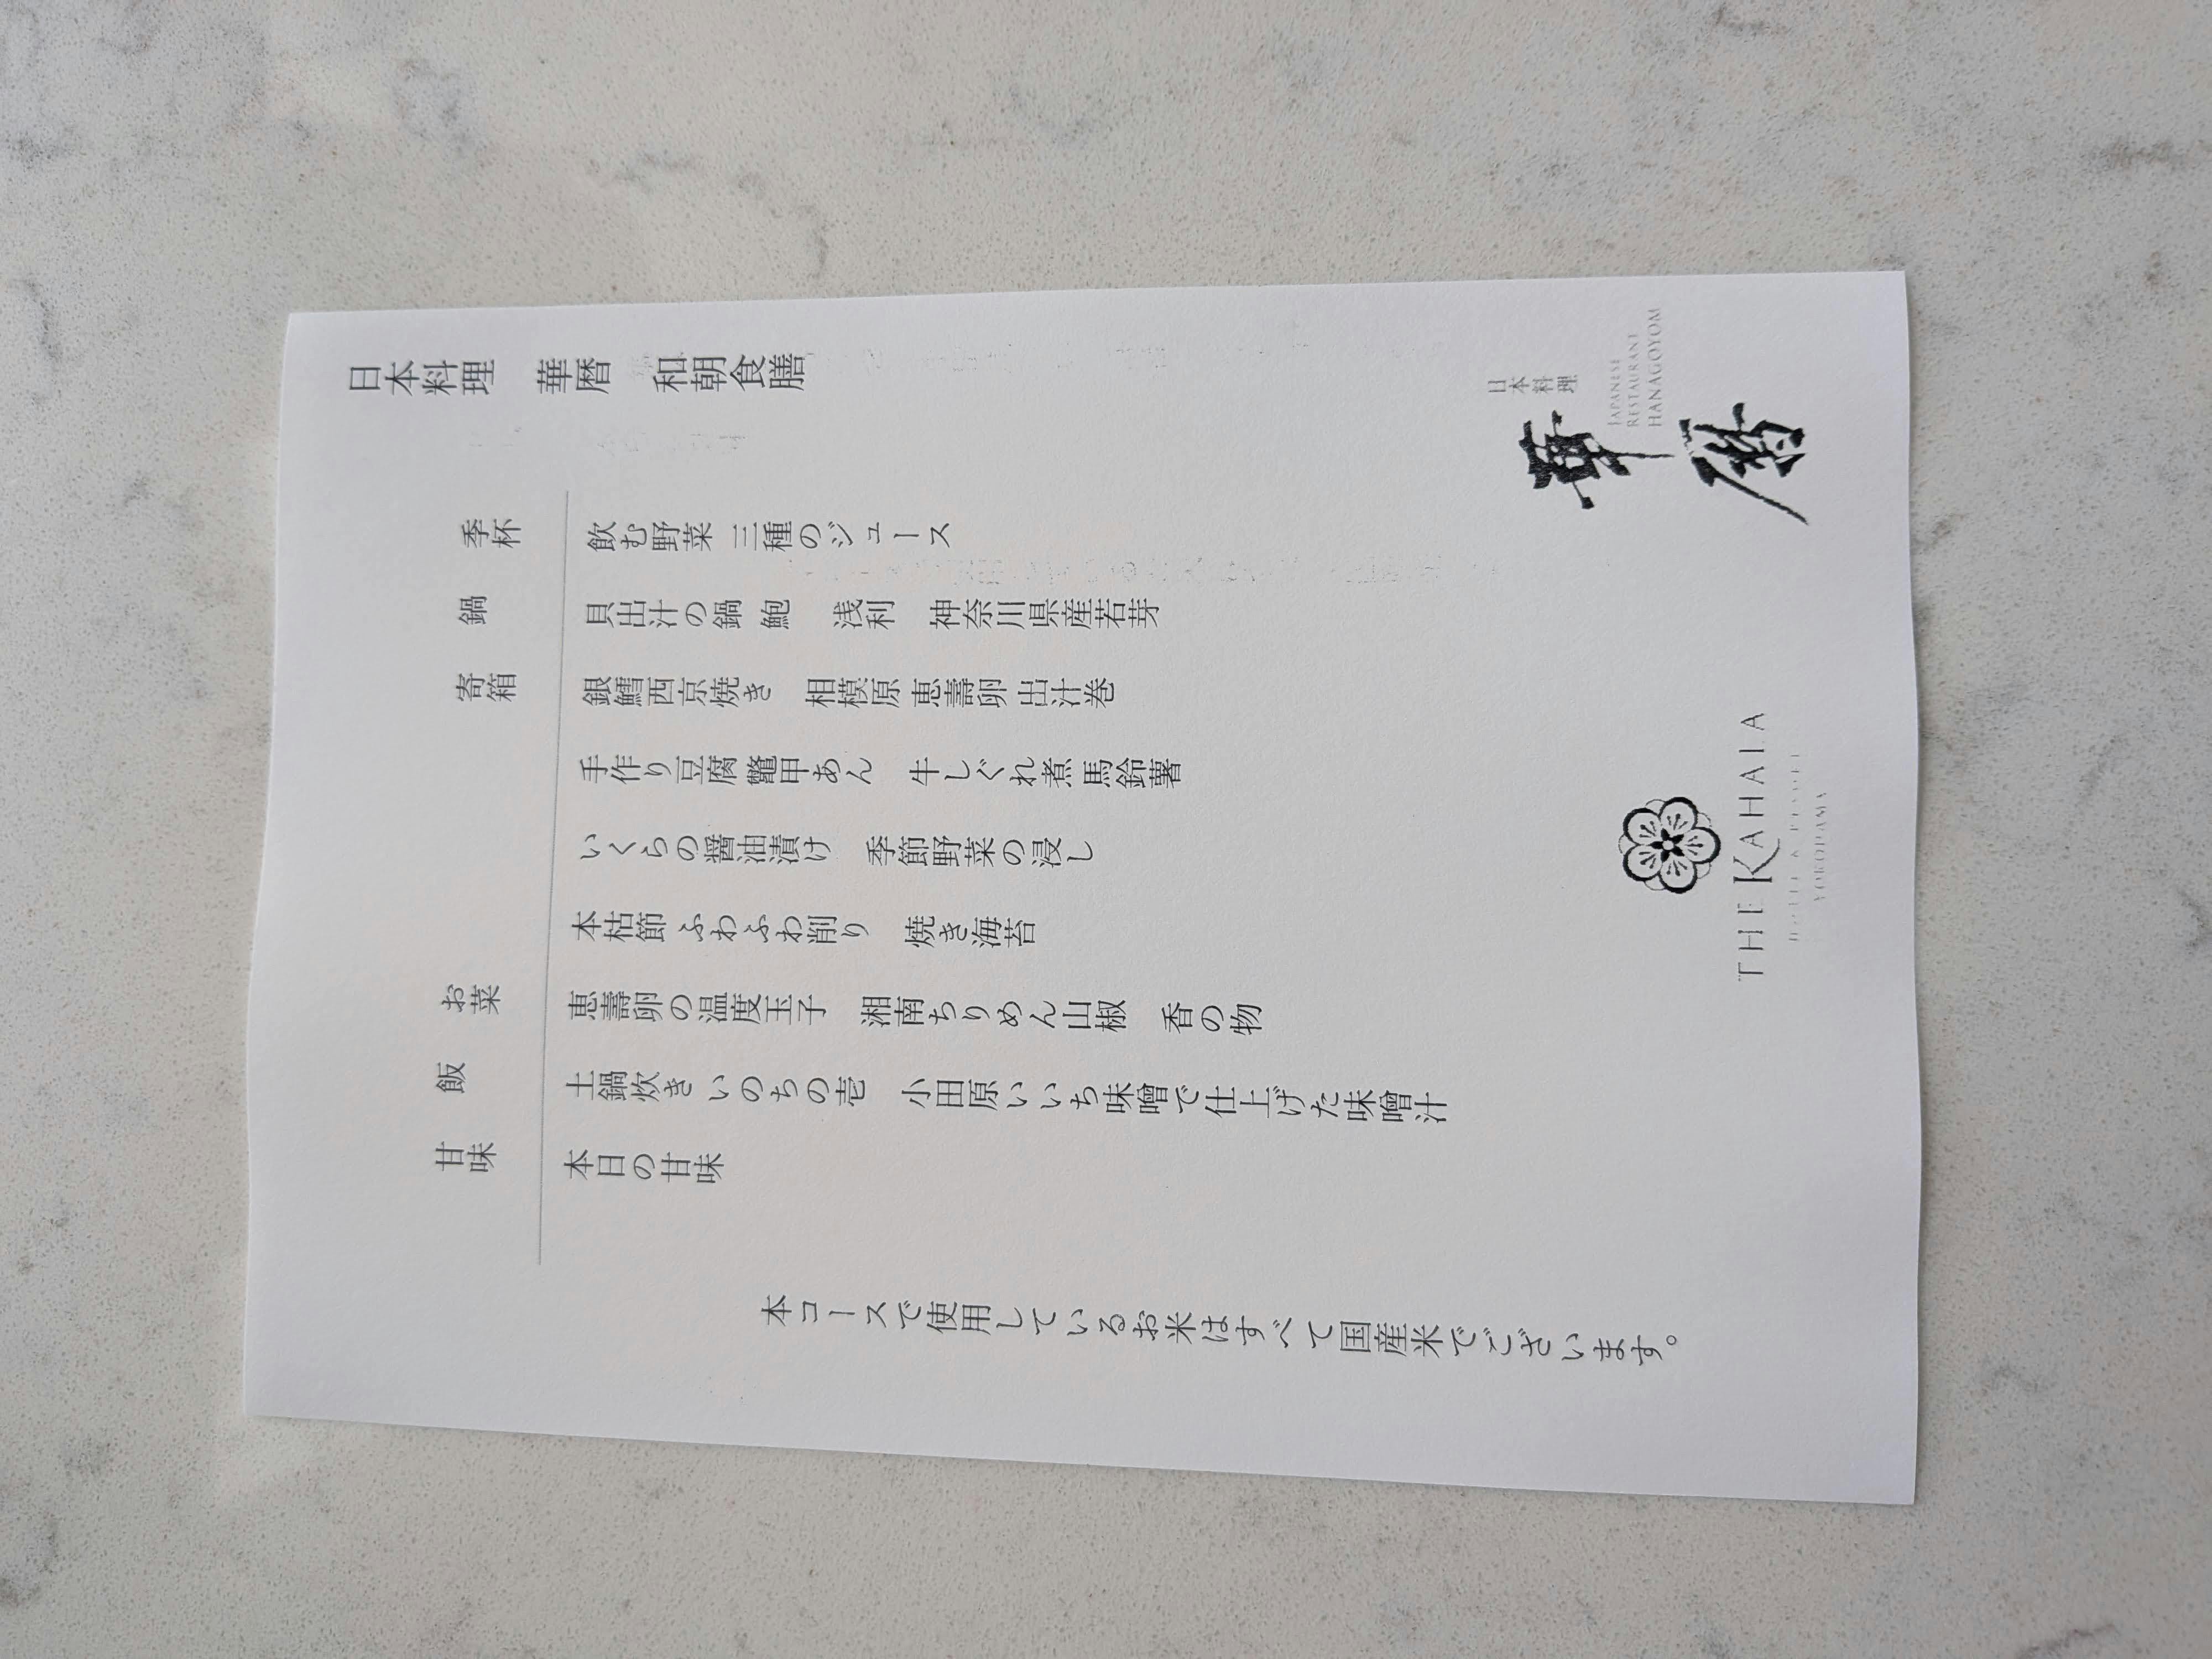 日本料理　華暦　和朝食膳
季杯　飲む野菜 三種のジュース
鍋　貝出汁の鍋 鮑　浅利　神奈川県産若芽
寄箱　銀鱈西京焼き　相模原 恵壽卵 出汁巻
手作り豆腐 鼈甲あん　牛しぐれ煮 馬鈴薯
いくらの醤油漬け　季節野菜の浸し
本枯節 ふわふわ削り　焼き海苔
お菜　恵壽卵の温度玉子　湘南ちりめん山椒　香の物
飯　土鍋炊き いのちの壱　小田原いいち味噌で仕上げた味噌汁
甘味　本日の甘味
本コースで使用しているお米はすべて国産米でございます。
日本料理
華暦
JAPANESE
RESTAURANT
HANAGOYOM
THE KAHALA
HOTEL & RESORT
YOKOHAMA